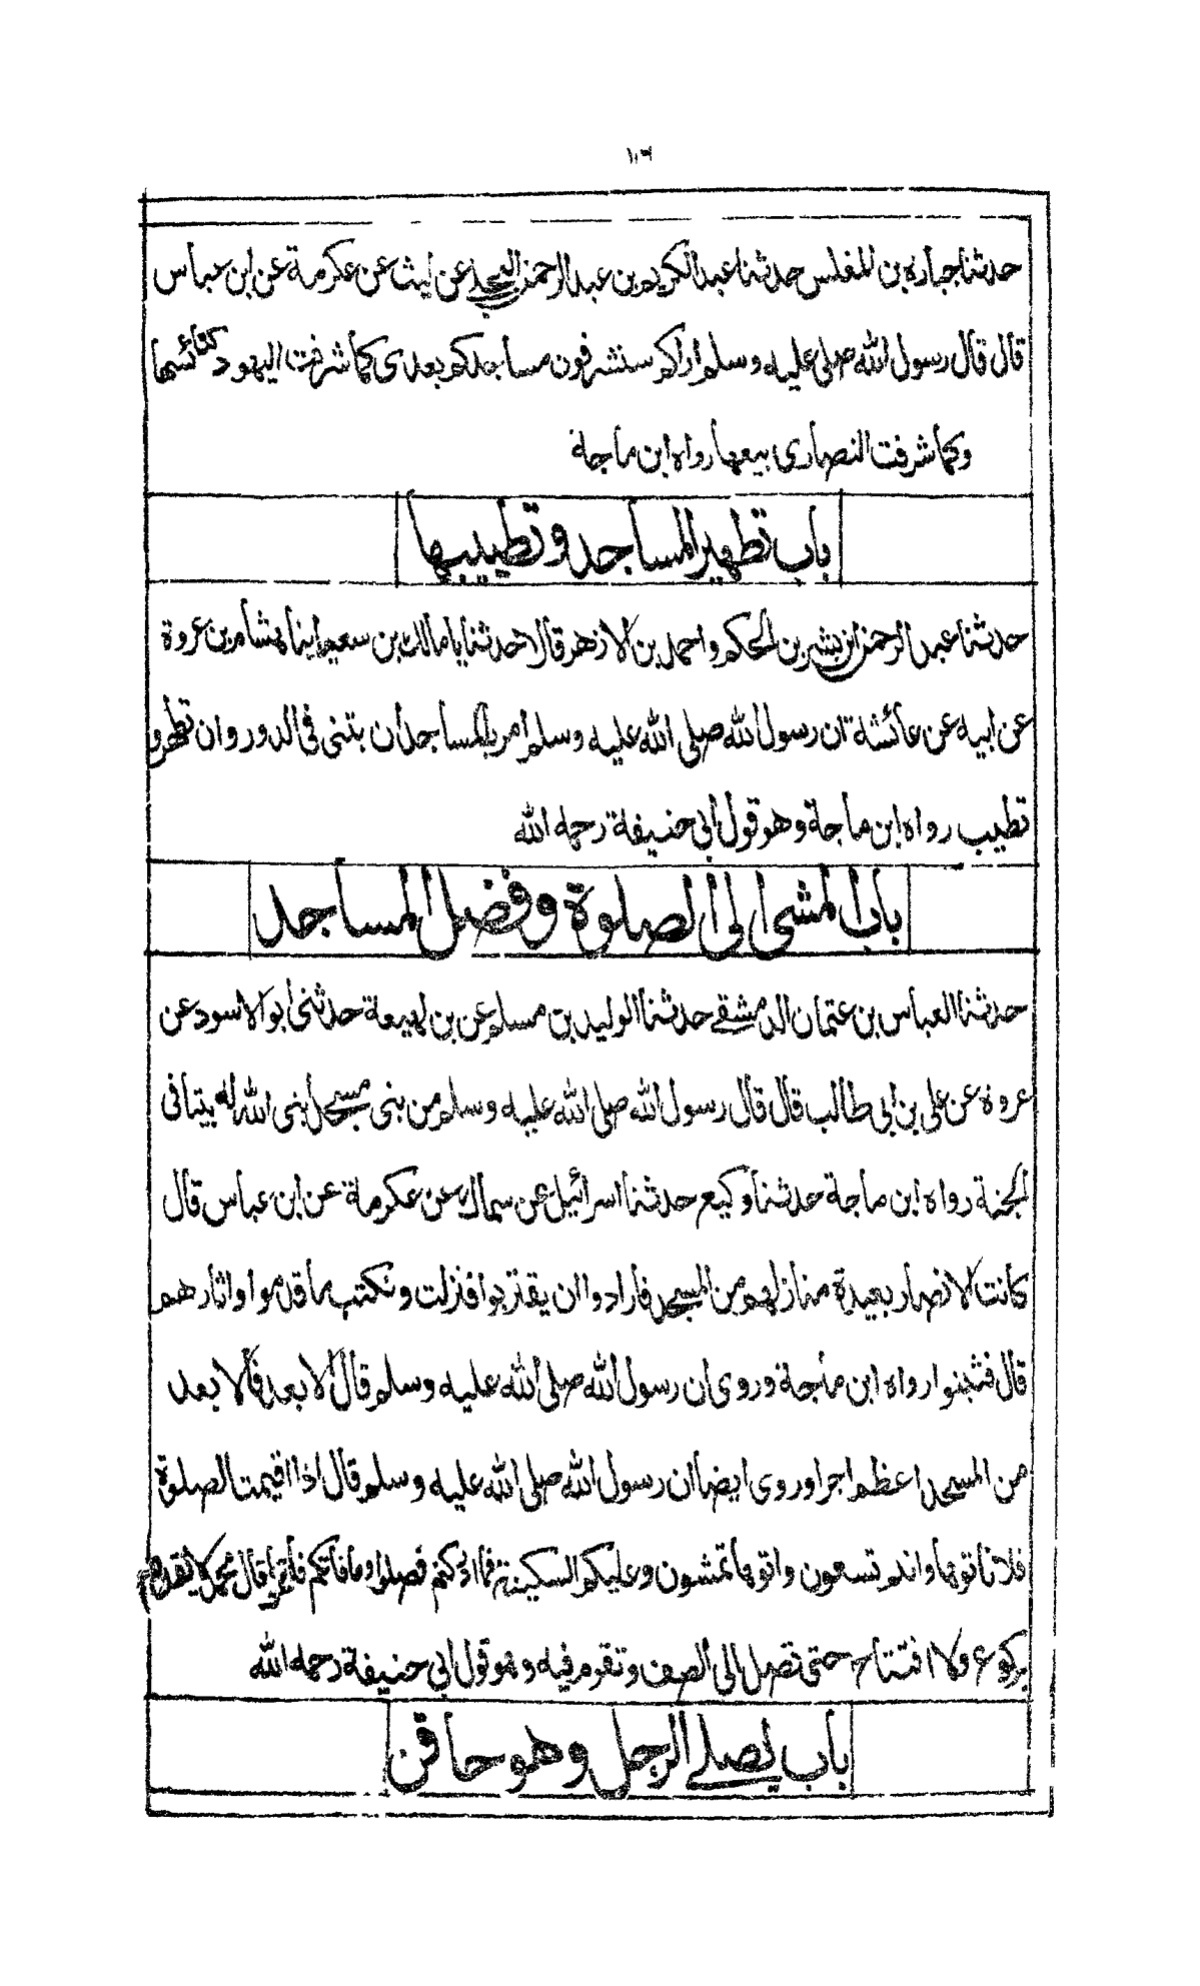 ١٠٦
حدثنا جباره بن المغلس حدثنا عبد الكريم بن عبد الرحمن البجلي عن ليث عن عكرمة عن ابن عباس
قال قال رسول الله صلى عليه وسلم اراكم ستشرفون مساجدكم بعدى كما شرفت اليهود كنائسها
وكما شرفت النصارى بيعها رواه ابن ماجة
باب تطهير المساجد وتطييبها
حدثنا عبد الرحمن ابن بشير بن الحكم واحمد بن الازهر قالا حدثنا يا مالك بن سعير انبا هشام بن عروة
عن ابيه عن عائشة ان رسول الله صلى الله عليه وسلم امر بالمساجد ان بتنى فى الدور وان تطهر و
تطيب رواه ابن ماجة وهو قول ابي حنيفة رحمه الله
باب المشى الى الصلوة وفضل المساجد
حدثنا العباس بن عثمان الدمشقے حدثنا الوليد بن مسلم عن بن لهيعة حدثنى ابو الاسود عن
عروة عن على بن ابي طالب قال قال رسول الله صلى الله عليه وسلم من بنى مسجدا بنى الله له بيتا فى
الجنة رواه ابن ماجة حدثنا وكيع حدثنا اسرائيل عن سماك عن عكرمة عن ابن عباس قال
كانت الانصار بعيدة منازلهم من المسجد فارادوا ان يقتربوا فنزلت ونكتب ما قدموا واثارهم
قال فثبتوا رواه ابن ماجة وروى ان رسول الله صلى الله عليه وسلم قال الابعد فالابعد
من المسجد اعظم اجرا وروى ايضا ان رسول الله صلى الله عليه وسلم قال اذا اقيمت الصلوة
فلا تاتوها وانتم تسعون واتوها تمشون وعليكم السكينة فما ادركتم فصلوا وما فاتكم فاتموا قال محمد لا
بركوع ولا افتتاح حتى تصل الى الصف وتقوم فيه وهو قول ابي حنيفة رحمه الله
باب يصلے الرجل وهو حاقن